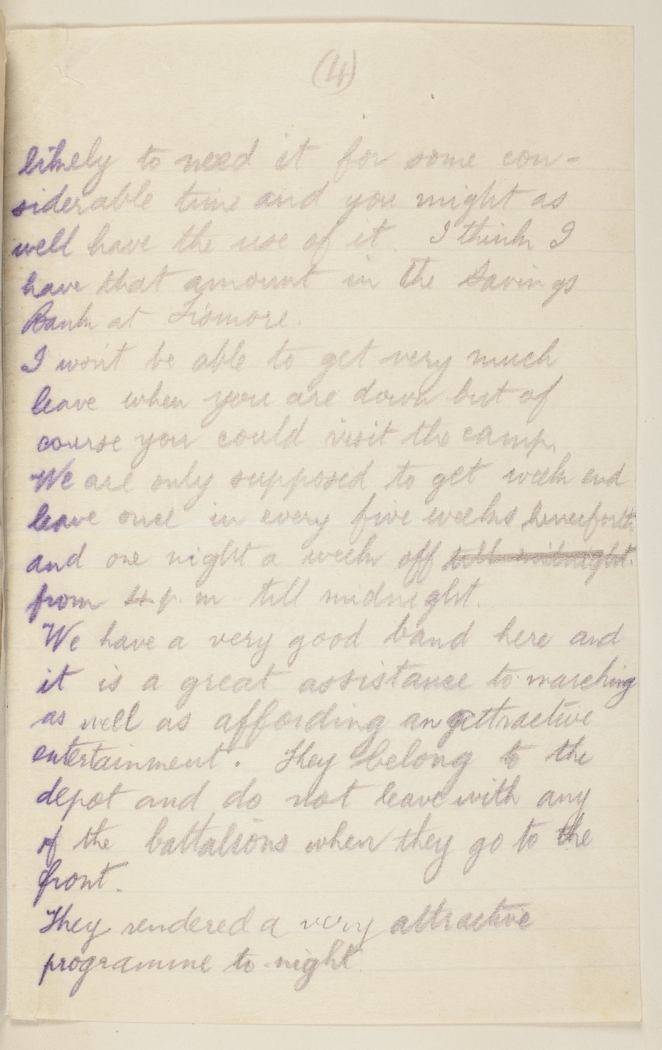 (4)
likely to need it for some con-
siderable time and you might as
well have the use of it. I think I
have that amount in the Savings
Bank at Lismore.
I won't be able to get very much
leave when you are down but of
course you could visit the camp.
We are only supposed to get week end
leave once in every five weeks henceforth
and one night a week off till midnight.
from 4 p.m till midnight.
We have a very good band here and
it is a great assistance to marching
as well as affording an attractive
entertainment. They belong to the
depot and do not leave with any
of the battalions when they go to the
front.
They rendered a very attractive
programme to-night